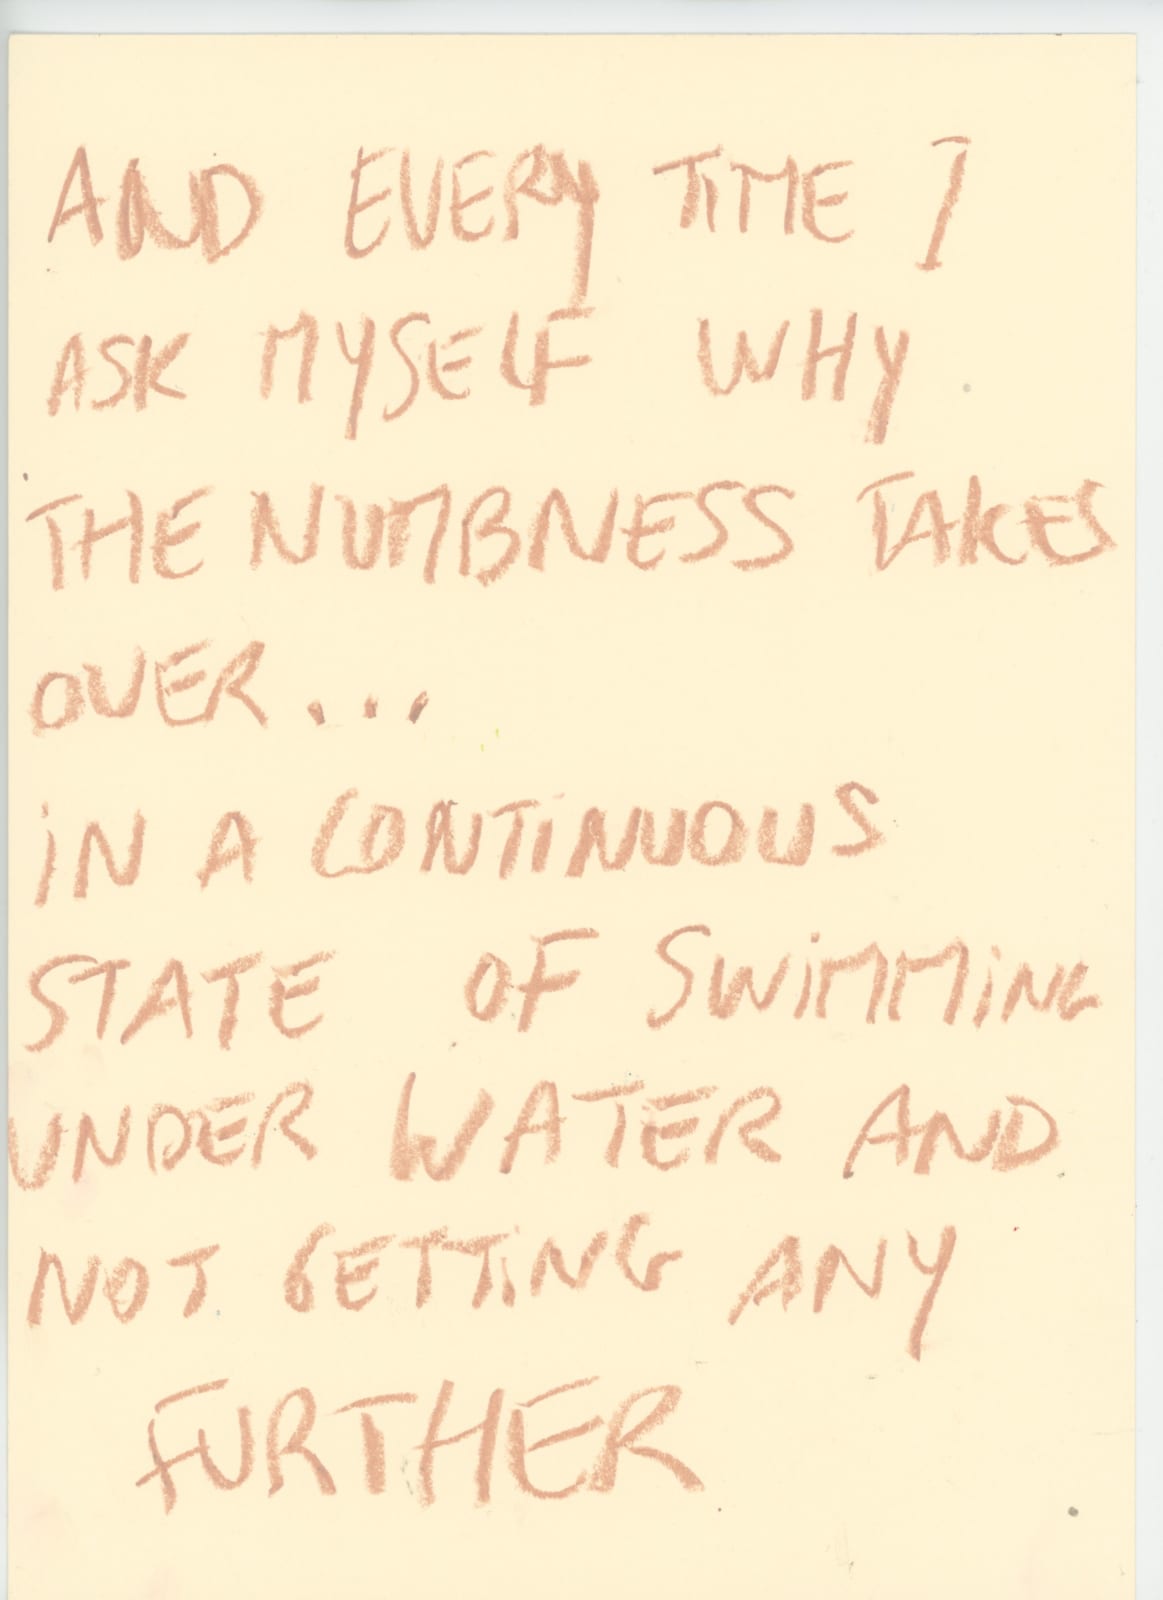 AND EVERY TIME I
ASK MYSELF WHY
THE NUMBNESS TAKES
OVER...
IN A CONTINUOUS
STATE OF SWIMMING
UNDER WATER AND
NOT GETTING ANY
FURTHER